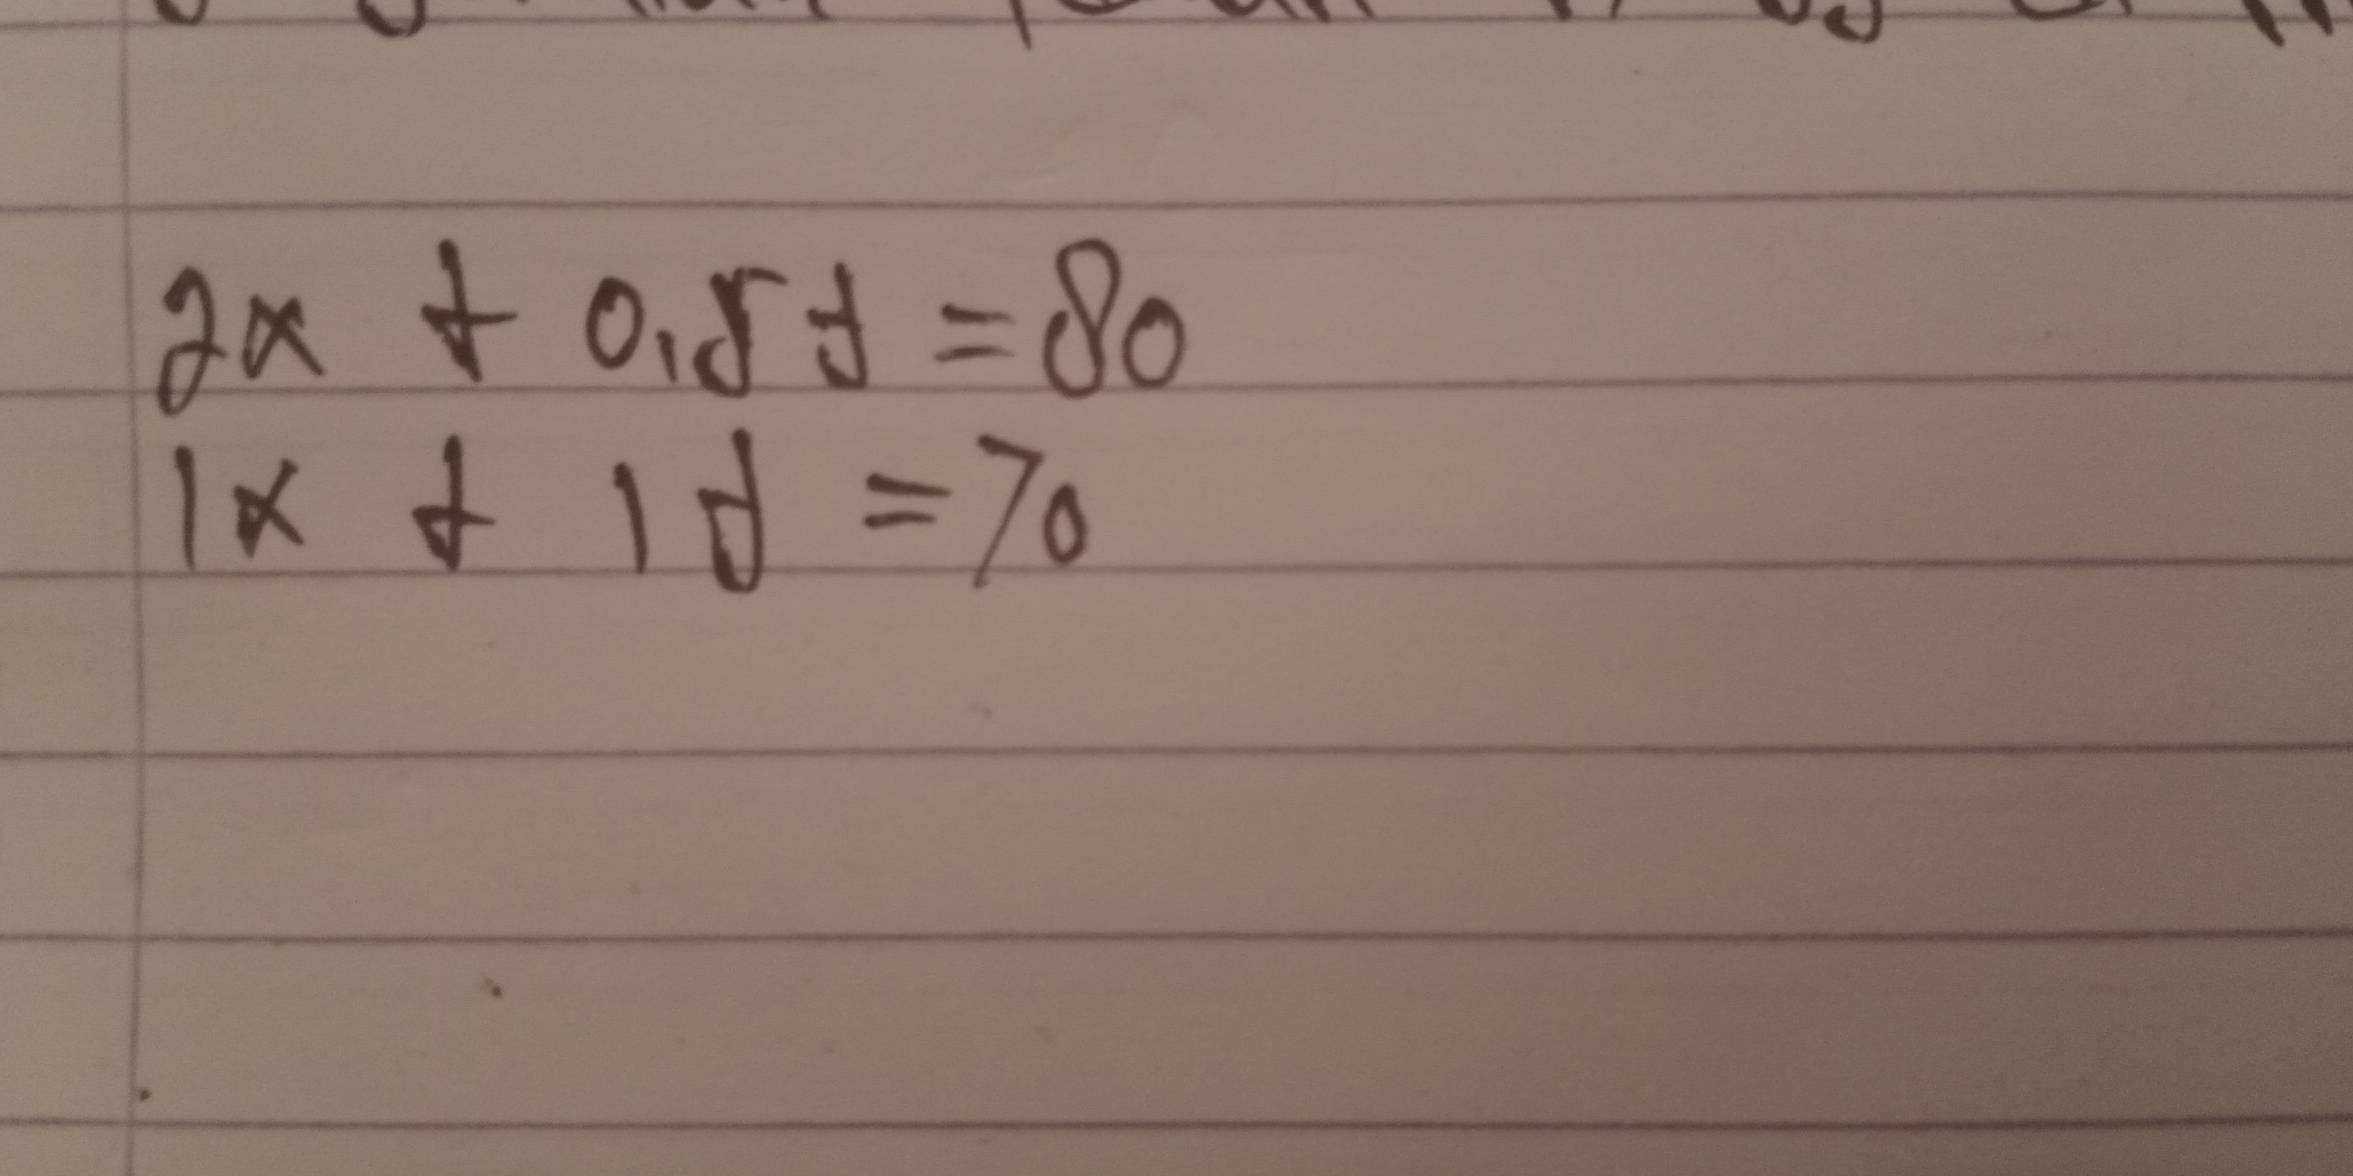 2x + 0,5y = 80
1x + 1y = 70